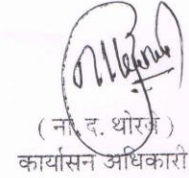 ( ना. द. थोरजे )
कार्यासन अधिकारी